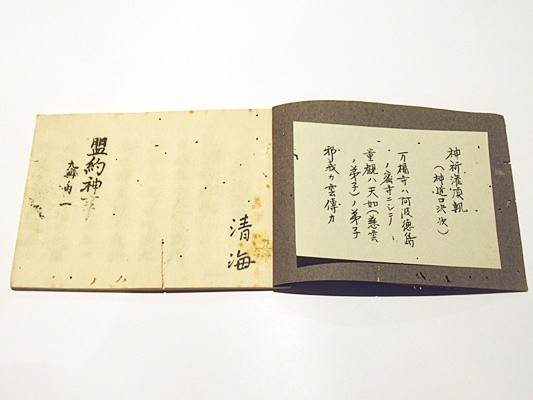 神祈灌頂軌
(神道口决次)
万福寺ハ阿波徳島
ノ廃寺ニシテ
童観ハ天如(慈雲
ノ弟子)ノ弟子
雲傳カ
清海
盟約神